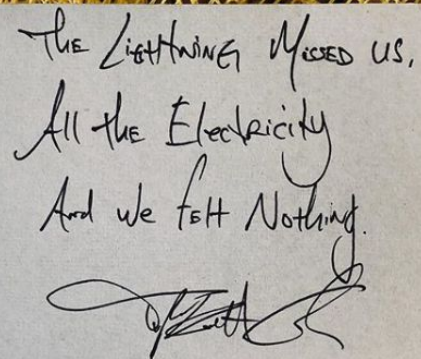 The Lightning Missed us,
All the Electricity
And we felt Nothing.